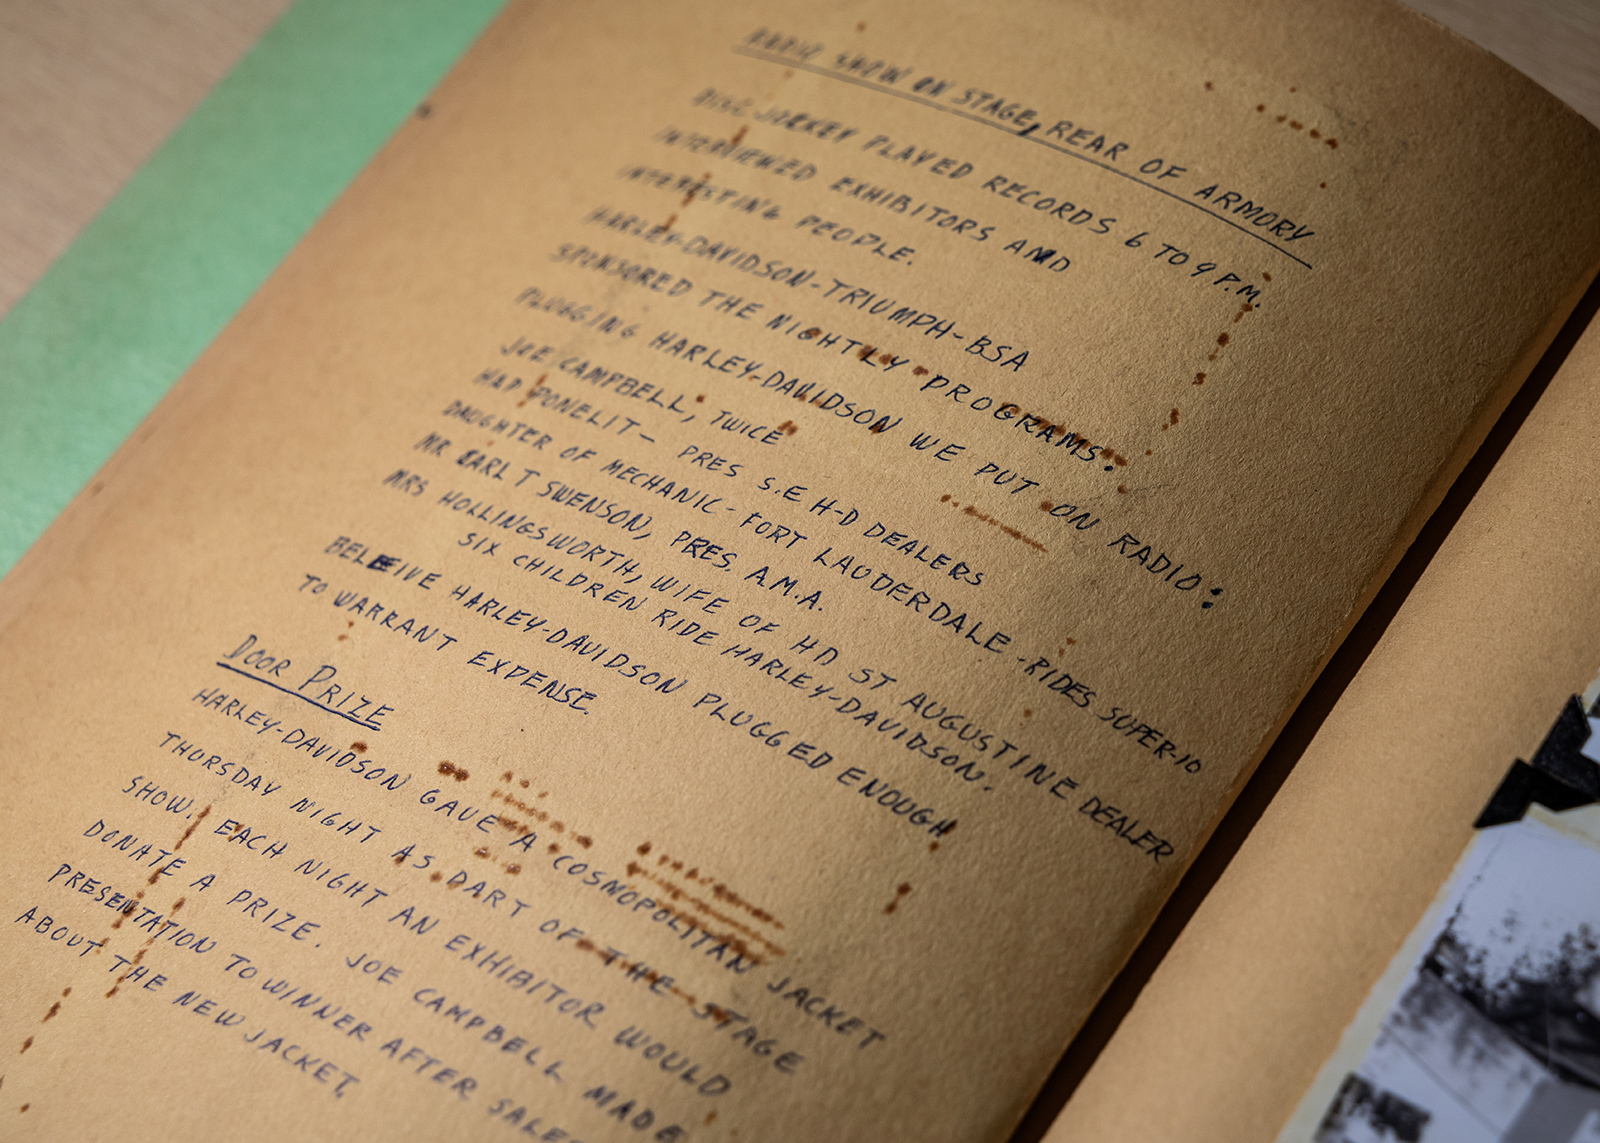 RADIO SHOW ON STAGE, REAR OF ARMORY
DISC JOCKEY PLAYED RECORDS 6 TO 9 P.M.
INTERVIEWED EXHIBITORS AND
INTERESTING PEOPLE.
HARLEY-DAVIDSON-TRIUMPH-BSA
SPONSORED THE NIGHTLY PROGRAMS.
PLUGGING HARLEY-DAVIDSON WE PUT ON RADIO:
JOE CAMPBELL, TWICE
HAP PONELIT - PRES S.E H-D DEALERS
DAUGHTER OF MECHANIC - FORT LAUDERDALE - RIDES SUPER-10
MR EARL T SWENSON, PRES. A.M.A.
MRS HOLLINGSWORTH, WIFE OF HD ST AUGUSTINE DEALER
SIX CHILDREN RIDE HARLEY-DAVIDSON.
BELEIVE HARLEY-DAVIDSON PLUGGED ENOUGH
TO WARRANT EXPENSE.
DOOR PRIZE
HARLEY-DAVIDSON GAVE A COSMOPOLITAN JACKET
THURSDAY NIGHT AS PART OF THE STAGE
SHOW. EACH NIGHT AN EXHIBITOR WOULD
DONATE A PRIZE. JOE CAMPBELL MADE
PRESENTATION TO WINNER AFTER SALES
ABOUT THE NEW JACKET.